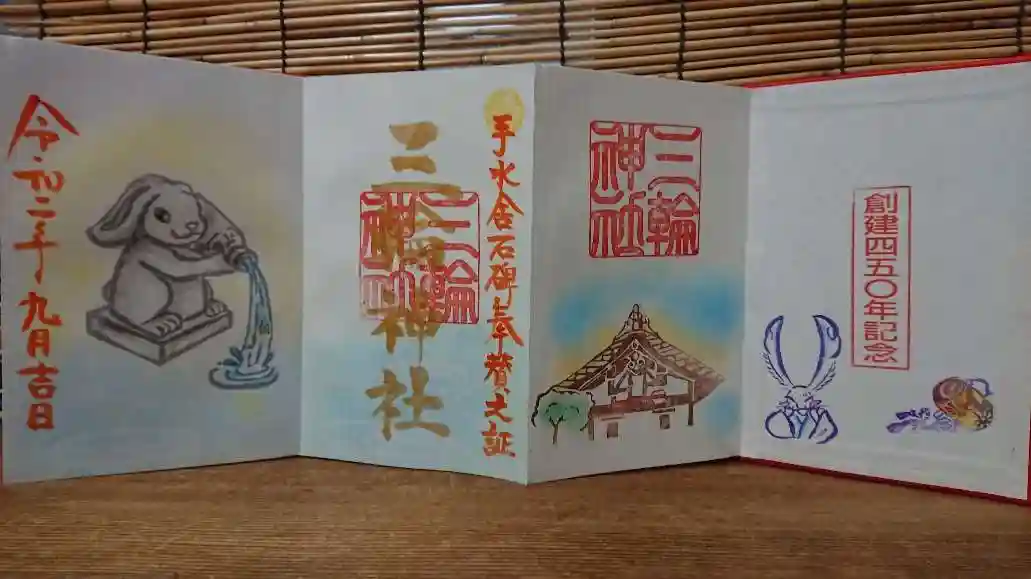 創建四五〇年記念
三輪
神社
手水舎石碑奉賛之証
三輪神社
三輪
神社
令和二年九月吉日